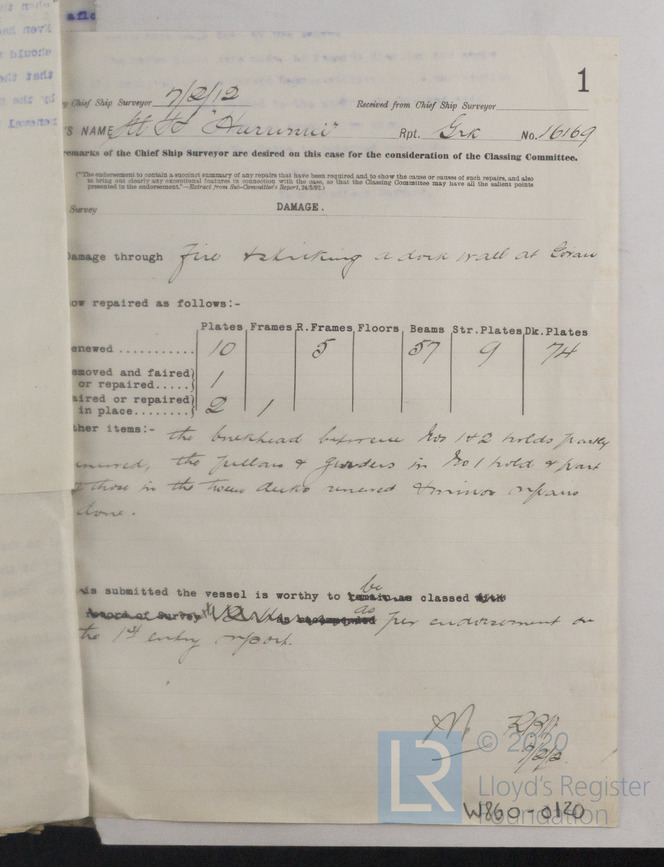 1
y Chief Ship Surveyor 7/2/12 Received from Chief Ship Surveyor
'S NAME "Harunui" Rpt. Grk No. 16169
remarks of the Chief Ship Surveyor are desired on this case for the consideration of the Classing Committee.
("The endorsement to contain a succinct summary of any repairs that have been required and to show the cause or causes of such repairs, and also
to bring out clearly any exceptional features in connection with the case, so that the Classing Committee may have all the salient points
presented in the endorsement."—Extract from Sub-Committee's Report, 24/5/92.)
Survey DAMAGE.
Damage through fire & striking a dock wall at
ow repaired as follows:-
Plates Frames R.Frames Floors Beams Str.Plates Dk.Plates
enewed ........... 10 5 57 9 74
emoved and faired)
or repaired.....} 1
aired or repaired)
in place........} 2 1
ther items:- the bulkhead between Nos 1 & 2 holds partly
the pillars & girders in No 1 hold & part
those in the tween decks renewed & minor repairs
done.
is submitted the vessel is worthy to be classed
as per endorsement on
the 1st entry report.
© 2020
LR
Lloyd's Register
Foundation
W860-0120